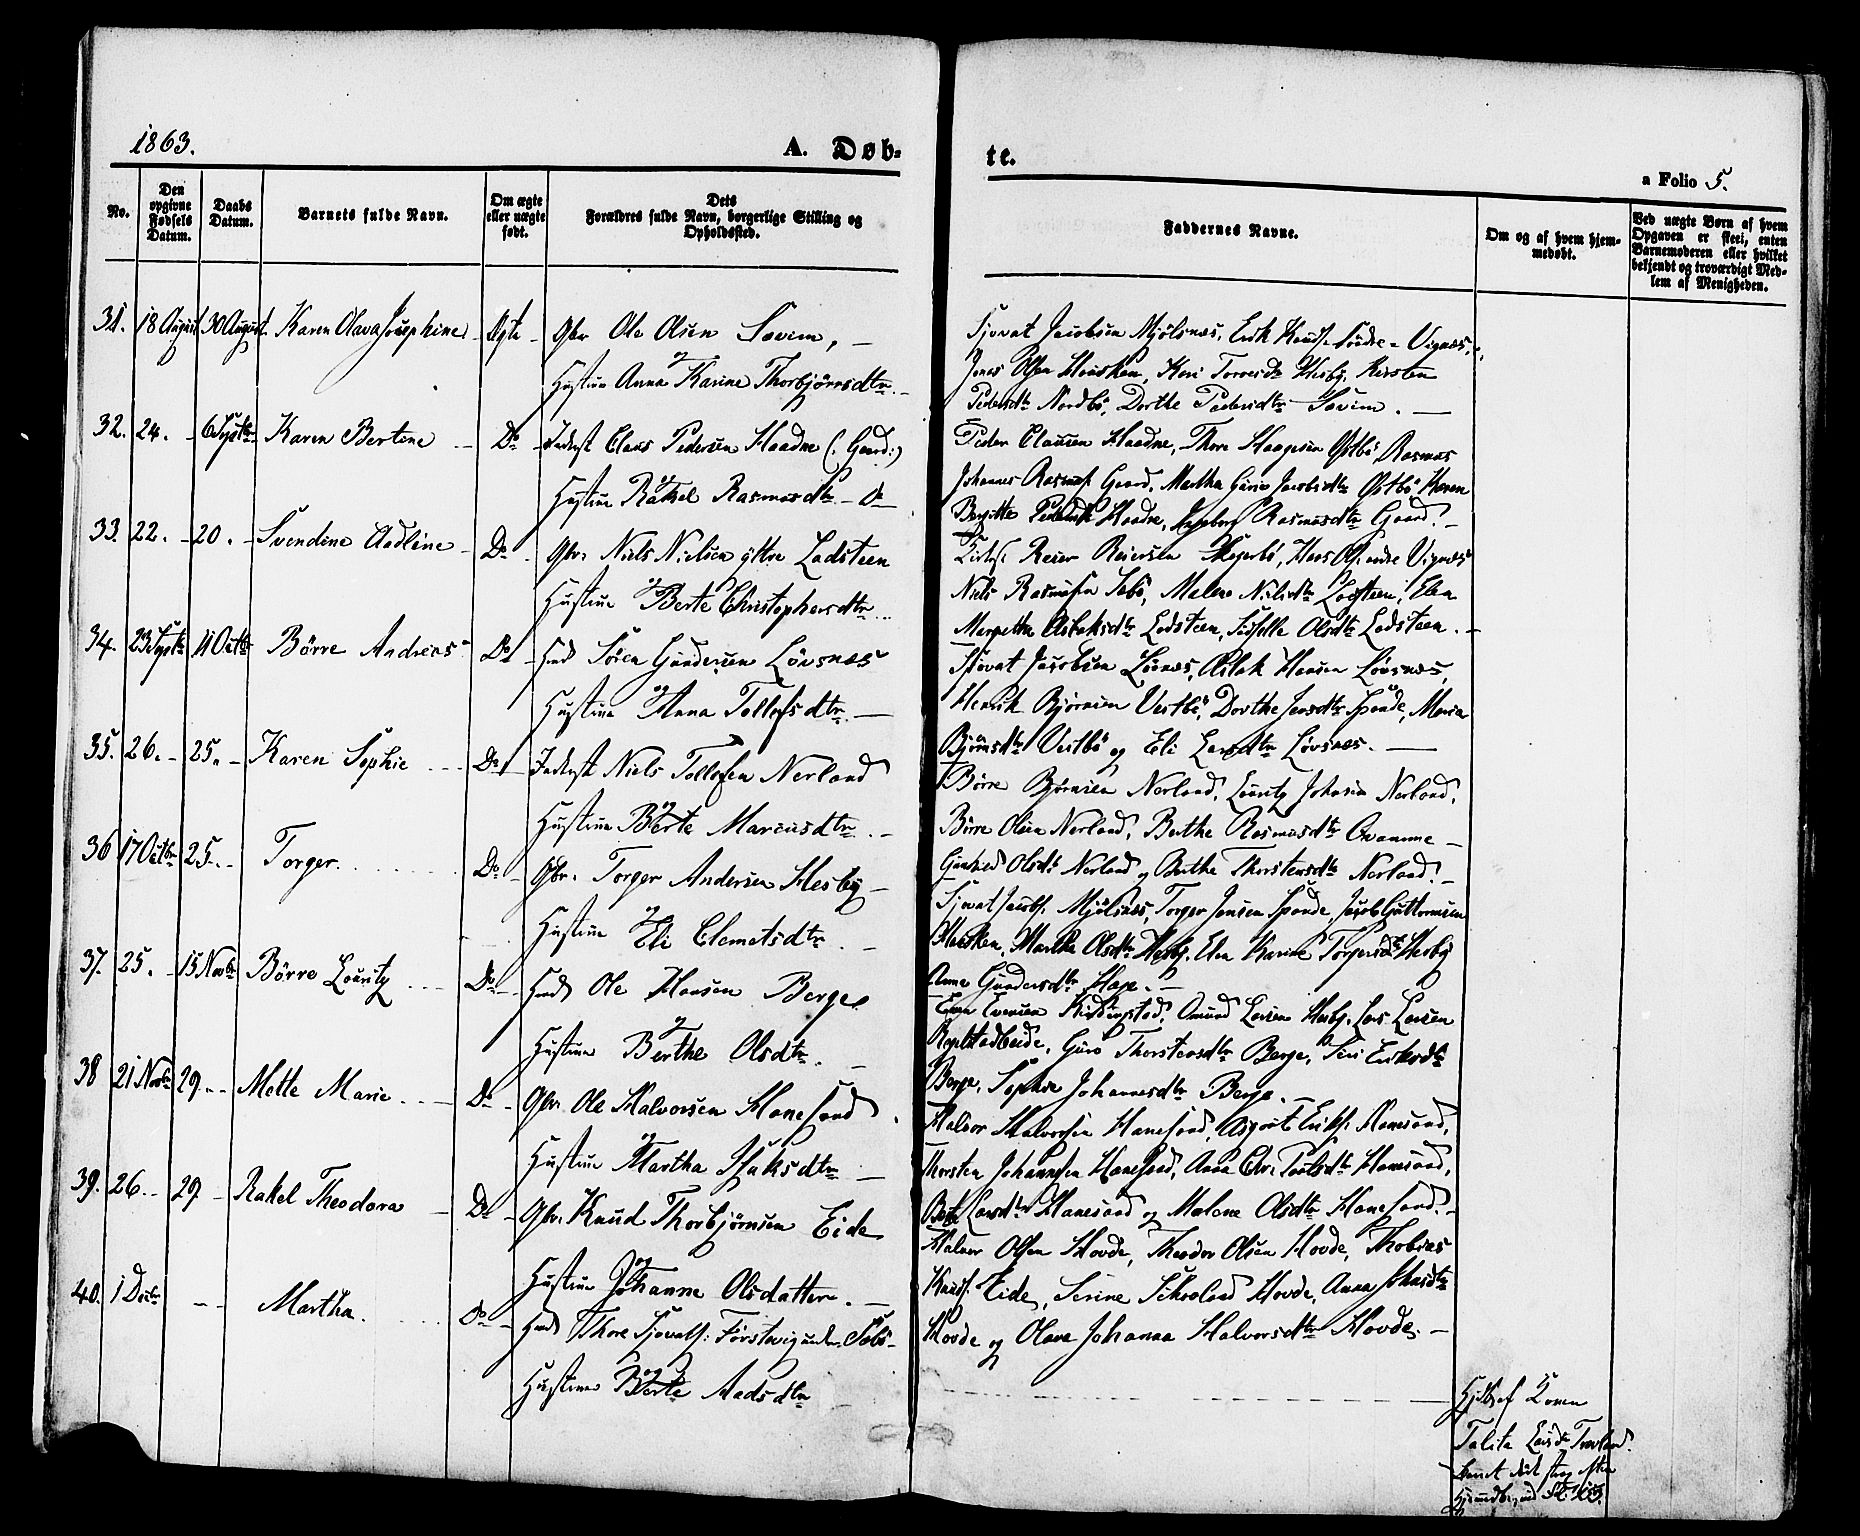 1863.
A. Døb-
te.
a Folio 5.
No.
Den opgivne Fødsels Datum.
Daabs Datum.
Barnets fulde Navn.
Om ægte eller uægte født.
Dets Forældres fulde Navn, borgerlige Stilling og Opholdssted.
Faddernes Navne.
Om og af hvem hjemmedøbt.
Ved uægte Børn af hvem Opgaven er skeet, enten Barnemoderen eller hvilket bekjendt og troværdigt Medlem af Menigheden.
31. 18 August 30 August Karen Olava Josephine Ægte Gbr Ole Olsen Sevem, –
og Hustru Anna Karine Thorbjørnsdtr. –
Sjovat Jacobsen Mjølsnæs, Erik Knuds. Søndre-Vignæs,
Jonas Olsen Hausken, Kari Torresdtr Hesby, Kirsten
Pedersdtr Nordbø, Dorthe Pedersdtr Sevem. –
32. 24. – 6 Septbr Karen Bertine – Do Inderst Claus Pedersen Haadne (: Gaard:)
og Hustru Rakel Rasmusdtr – Do –
Peder Clausen Haadne, Thore Haagesen Østbø, Rasmus
Johannes Rasmuss. Gaard, Martha Guria Jacobsdtr Østbø, Karen
Bergitte Pedersdtr Haadne, Ingeborg Rasmusdtr Gaard. –
33. 22. – 20. – Svendine Aadline – Do – Gbr. Niels Nielsen ytre Ladsteen
og Hustru Berte Christophersdtr. –
Reier Reiersen Hegerbø, Hans Ols. Vignæs
Niels Rasmusen Sebø, Malene Nielsdtr Lodsteen, Elen
Mergrethe Aslaksdtr Lodsteen, Sidselle Olsdtr Lodsteen. –
34. 23 Septbr 11 Octbr Børre Andreas Do – Hmd Søren Gundersen Løvsnæs
og Hustru Anna Tollefsdtr. –
Sjovat Jacobsen Løvnæs, Aslak Hansen Løvsnæs,
Henrik Bjørnsen Vestbø, Dorthe Jensdtr Spande, Maria
Bjørnsdtr Vestbø og Eli Larsdtr Løvsnæs. –
35. 26. – 25. – Karen Sophie – Do – Inderst Niels Tollefsen Nerland
og Hustru Berte Marcusdtr. –
Børre Bjørnsen Nerland, Lauritz Johnsen Nerland,
Børre Olsen Nerland, Berthe Rasmusdtr Qvamme –
Gunhild Olsdtr Nerland og Berthe Thorstensdtr Nerland. –
36 17 Octbr 25. – Torger. Do – Gbr. Torger Andersen Hesby –
og Hustru Eli Clemetsdtr. –
Sjovat Jacobs. Mjølsnæs, Torger Jensen Spande, Jacob Guttormsen
Hausken, Marthe Olsdtr Hesby, Elen Karine Torgersdtr Hesby
Anne Gundersdtr Hage. –
37. 25. – 15 Novbr Børre Lauritz Do – Hmd Ole Hansen Berge
og Hustru Berthe Olsdtr. –
Even Evensen Kindingstad, Omund Larsen Hesby, Lars Larsen
Guro Thorstensdtr Berge, Siri Eriksdtr
Berge, Sophie Johannesdtr Berge. –
38 21 Novbr 29. – Mette Marie Do – Gbr. Ole Halvorsen Hanesand.
og Hustru Martha Isaksdtr –
Halvor Halvorsen Hanesand, Asgout Eriks. Hanesand,
Thorsten Johannesen Hanesand, Anna Chr. Poulsdtr Hanesand,
Berte Larsdtr Hanesand og Malene Olsdtr Hanesand. –
39. 26. – 29 – Rakel Theodora – Do – Gbr. Knud Thorbjørnsen Eide
og Hustru Johanne Olsdatter. –
Halvor Olsen Hovde, Theodor Olsen Hovde, Thobias
Knuds. Eide, Serine Hovde, Anna Johnsdtr
Hovde og Olava Johanna Halvorsdtr Hovde. –
40. 1 Decbr – – Martha. Do – Hmd Thore Sjovats: Førstevig under Sebø –
og Hustru Berte Aadsdtr
Hjdbt af Konen
Talita Larsdtr Tveitland.